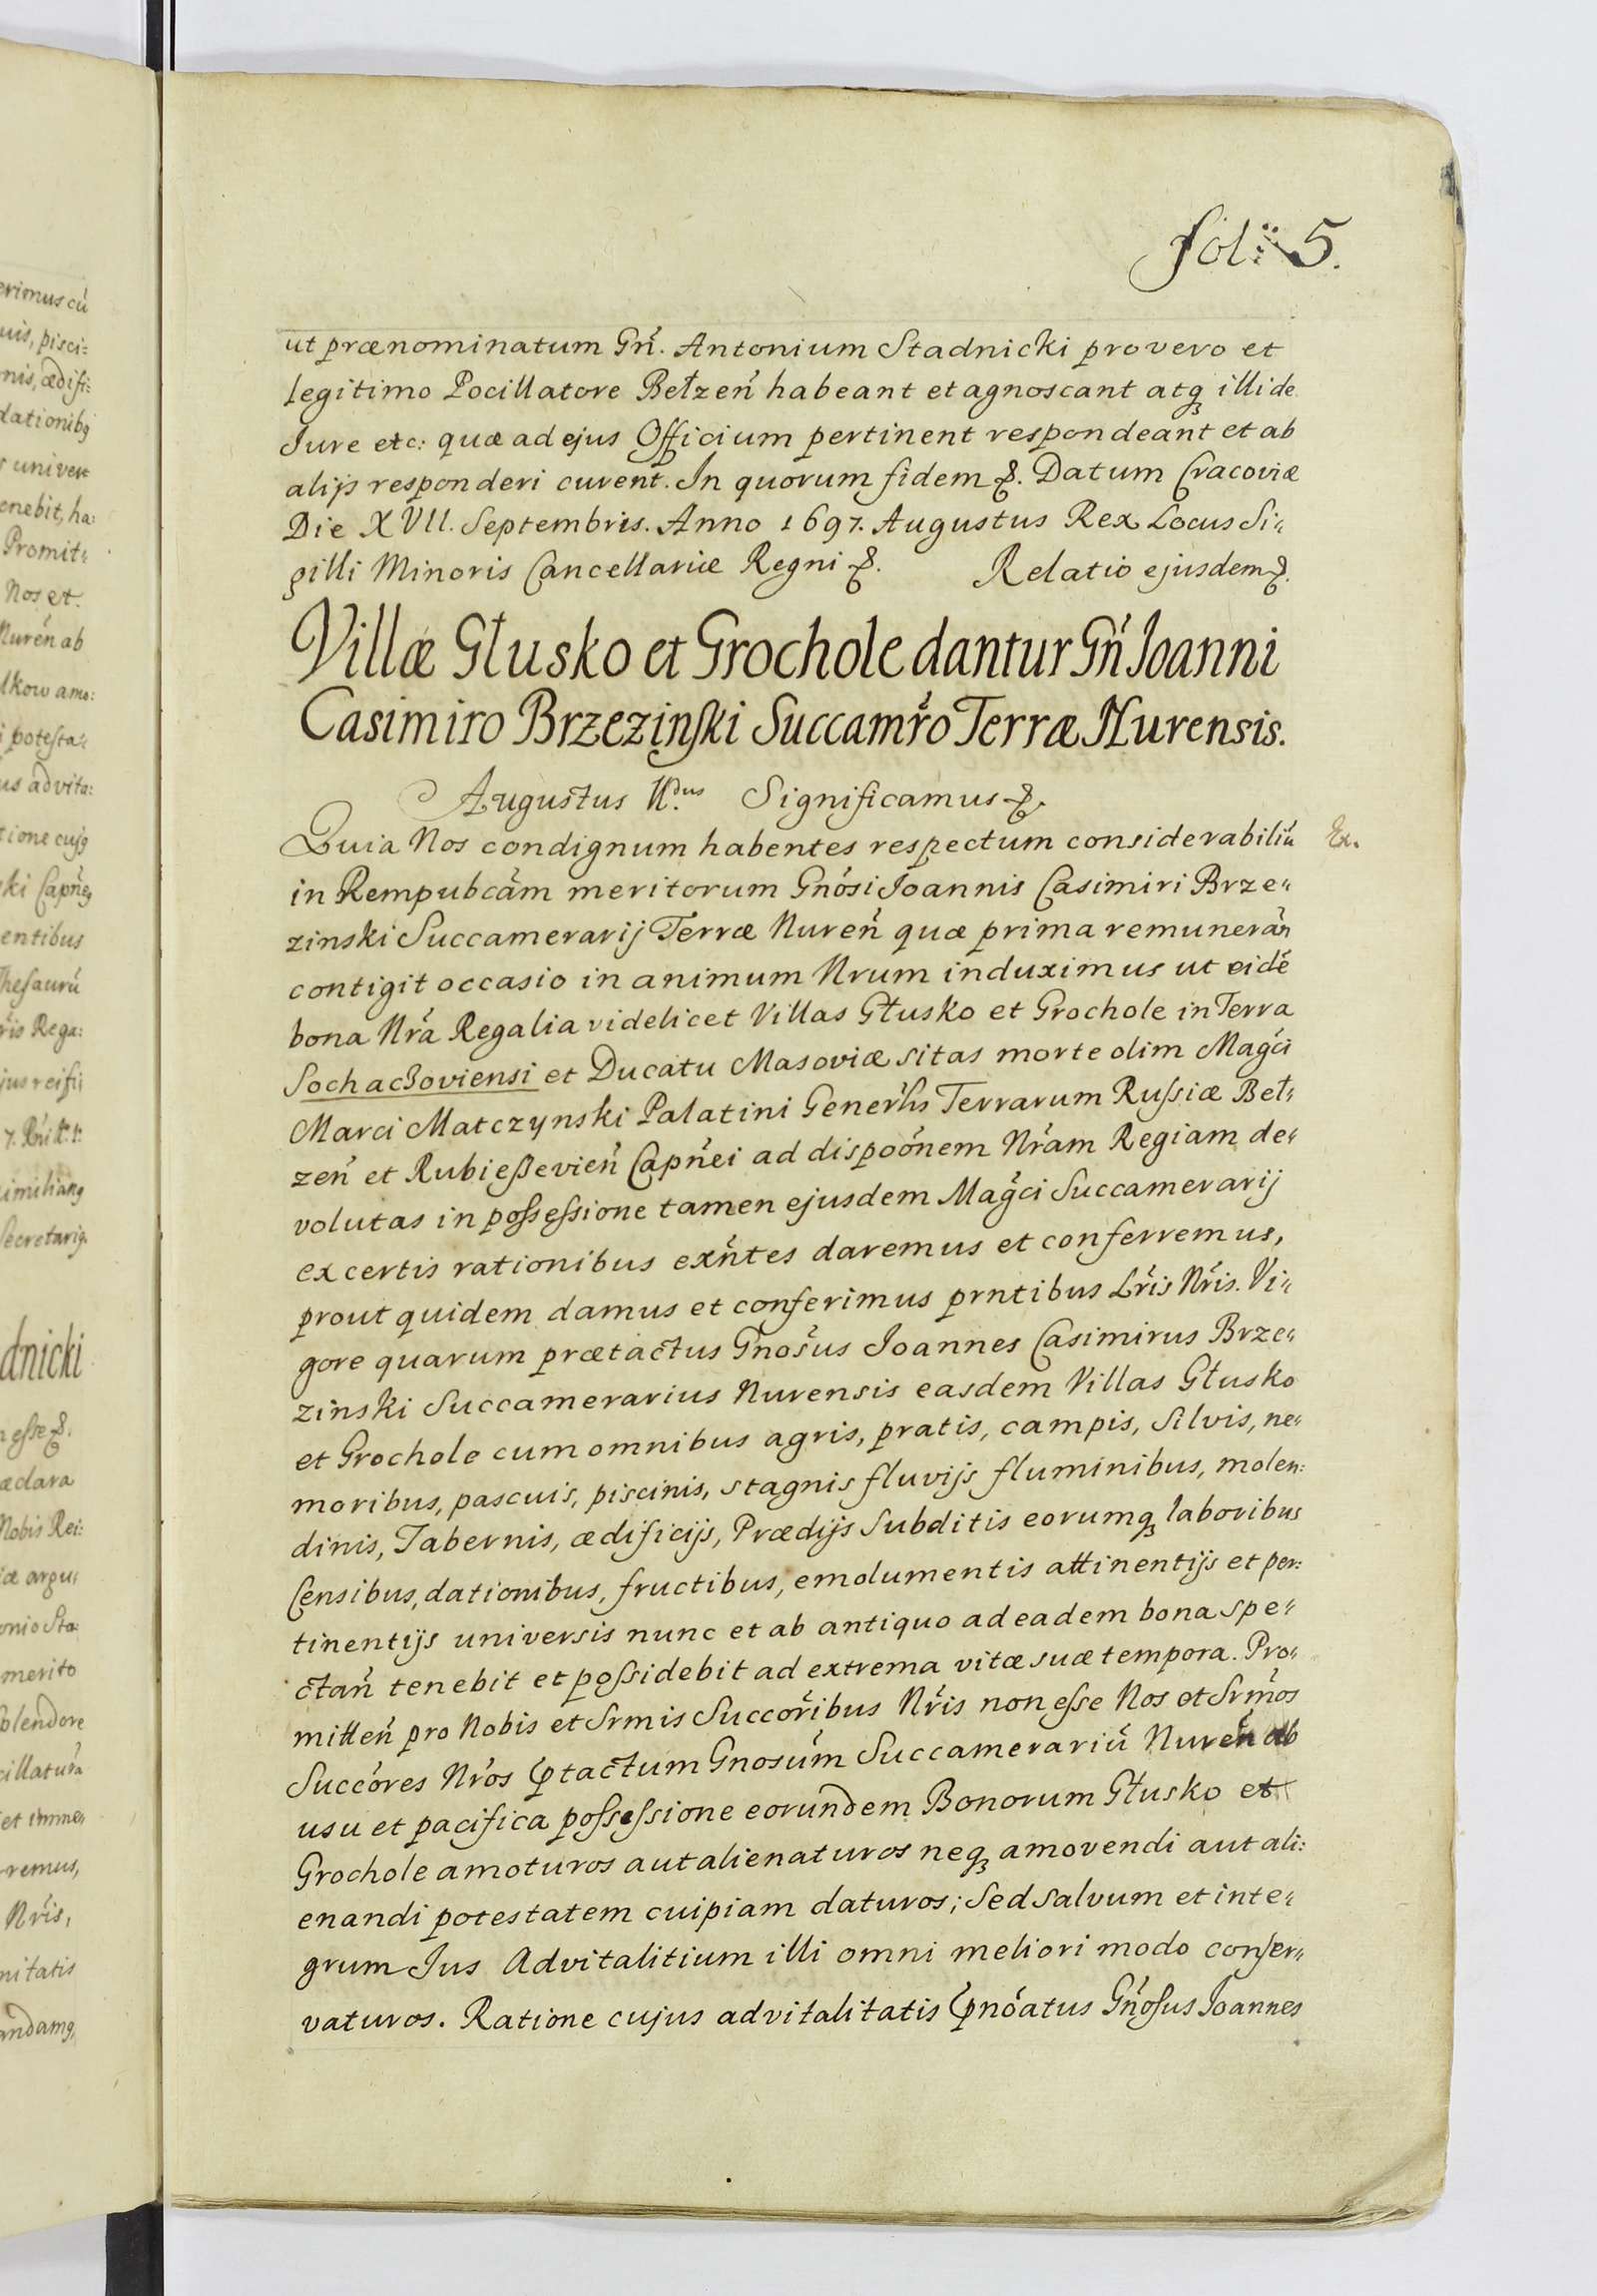 fol: 5.
ut prænominatum Gn̄. Antonium Stadnicki pro vero et
legitimo Pocillatore Bełzen̄ habeant et agnoscant atq3 illi de
Jure etc: quæ ad ejus Officium pertinent respondeant et ab
alijs responderi curent. In quorum fidem &. Datum Cracoviæ
Die XVII. Septembris. Anno 1697. Augustus Rex Locus Si-
gilli Minoris Cancellariæ Regni &. Relatio ejusdem &.
Villæ Głusko et Grochole dantur Gn̄ Joanni
Casimiro Brzezinski Succamr̄o Terræ Nurensis.
Augustus II.dus Significamus &.
Quia Nos condignum habentes respectum considerabiliū
Ex.
in Rempubcām meritorum Gnōsi Joannis Casimiri Brze-
zinski Succamerarij Terræ Nuren̄ quæ prima remunerān
contigit occasio in animum Nrum induximus ut eidē
bona Nrā Regalia videlicet Villas Głusko et Grochole in Terra
Sochaczoviensi et Ducatu Masoviæ sitas morte olim Magc̄i
Marci Matczynski Palatini Generl̄is Terrarum Russiæ Beł-
zen̄ et Rubieszevien̄ Capn̄ei ad dispoōnem Nrām Regiam de-
volutas in possessione tamen ejusdem Magc̄i Succamerarij
ex certis rationibus exn̄tes daremus et conferremus,
prout quidem damus et conferimus prntibus Lr̄is Nr̄is. Vi-
gore quarum prætactus Gnosūs Joannes Casimirus Brze-
zinski Succamerarius Nurensis easdem Villas Głusko
et Grochole cum omnibus agris, pratis, campis, silvis, ne-
moribus, pascuis, piscinis, stagnis fluvijs fluminibus, molen:
dinis, Tabernis, ædificijs, Prædijs Subditis eorumq3 laboribus
Censibus, dationibus, fructibus, emolumentis attinentijs et per:
tinentijs universis nunc et ab antiquo ad eadem bona spe-
ctan̄ tenebit et possidebit ad extrema vitæ suæ tempora. Pro-
mitten̄ pro Nobis et Srmis Succorībus Nr̄is non esse Nos et Srmōs
Succōres Nrōs p̄tactum Gnosūm Succamerariū Nuren̄ ab
usu et pacifica possessione eorundem Bonorum Głusko et
Grochole amoturos aut alienaturos neq3 amovendi aut ali:
enandi potestatem cuipiam daturos; Sed salvum et inte-
grum Jus Advitalitium illi omni meliori modo conser-
vaturos. Ratione cujus advitalitatis p̄nōatus Gn̄osus Joannes